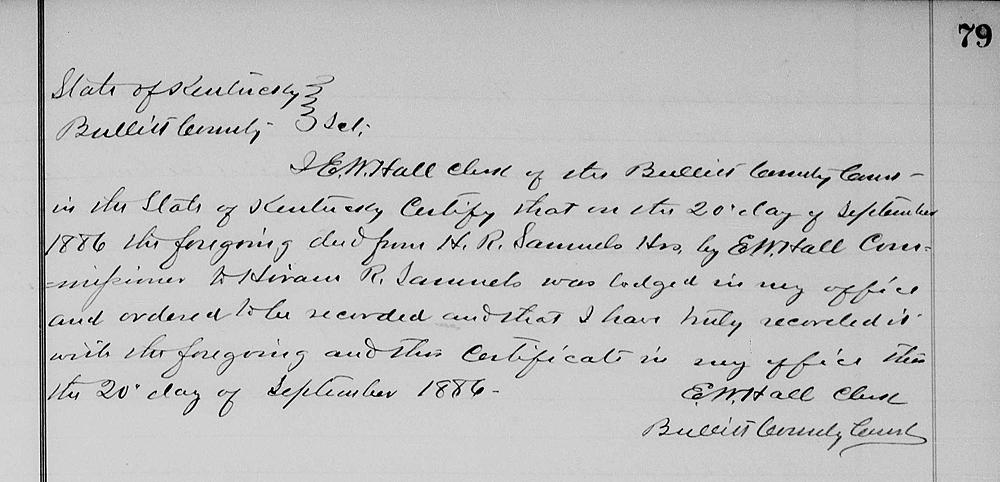 79
State of Kentucky
Bullitt County Sct;
I E.W. Hall Clerk of the Bullitt County Court
in the State of Kentucky Certify that on the 20 day of September
1886 the foregoing deed from H. R. Samuels Hrs, by E.W. Hall Com=
=missioner to Hiram R. Samuels was lodged in my office
and ordered to be recorded and that I have truly recorded it
with the foregoing and this Certificate in my office this
the 20 day of September 1886 -
E.W. Hall Clerk
Bullitt County Court